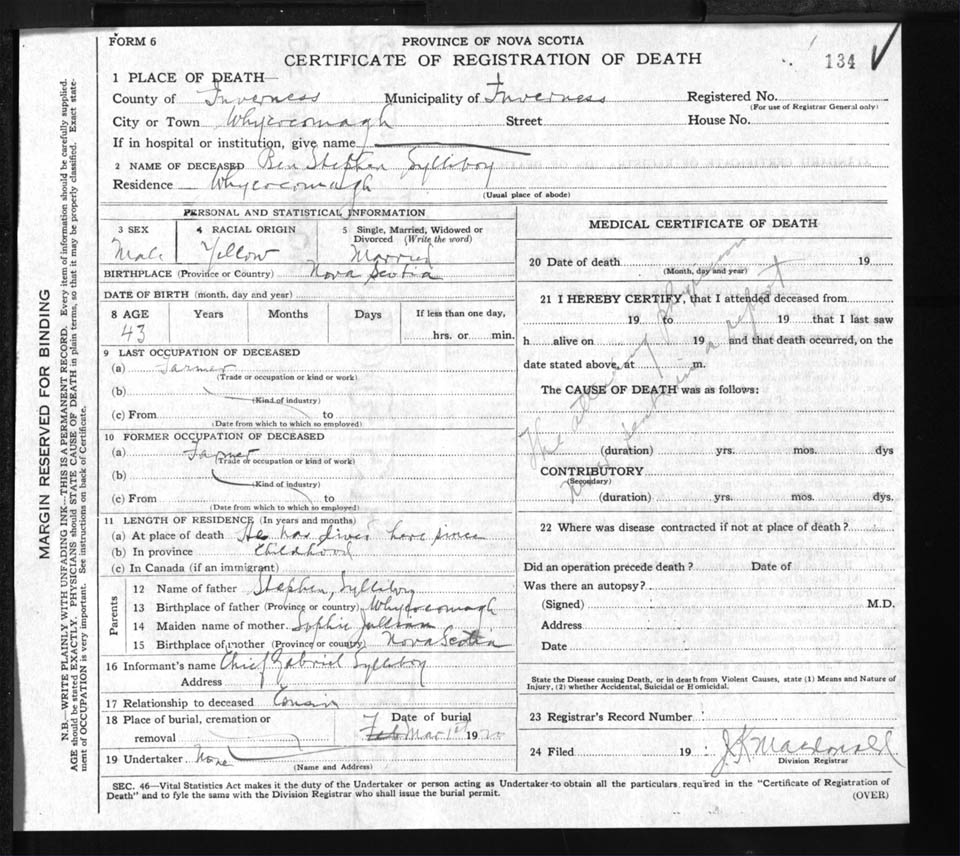 FORM 6
PROVINCE OF NOVA SCOTIA
CERTIFICATE OF REGISTRATION OF DEATH
134 ✓
1 PLACE OF DEATH—
County of Inverness Municipality of Inverness Registered No.
(For use of Registrar General only)
City or Town Whycocomagh Street House No.
If in hospital or institution, give name
2 NAME OF DECEASED Ben Stephen Sylliboy
Residence Whycocomagh
(Usual place of abode)
PERSONAL AND STATISTICAL INFORMATION
3 SEX 4 RACIAL ORIGIN 5 Single, Married, Widowed or Divorced (Write the word)
Male Yellow Married
BIRTHPLACE (Province or Country) Nova Scotia
DATE OF BIRTH (month, day and year)
8 AGE Years Months Days If less than one day,
43 hrs. or min.
9 LAST OCCUPATION OF DECEASED
(a) Farmer
(Trade or occupation or kind or work)
(b)
(Kind of industry)
(c) From to
(Date from which to which so employed)
10 FORMER OCCUPATION OF DECEASED
(a) Farmer
(Trade or occupation or kind of work)
(b)
(Kind of industry)
(c) From to
(Date from which to which so employed)
11 LENGTH OF RESIDENCE (In years and months)
(a) At place of death He has lived here since
(b) In province childhood
(c) In Canada (if an immigrant)
Parents
12 Name of father Stephen Sylliboy
13 Birthplace of father (Province or country) Whycocomagh
14 Maiden name of mother Sophie
15 Birthplace of mother (Province or country) Nova Scotia
16 Informant's name Chief Gabriel Sylliboy
Address
17 Relationship to deceased Cousin
18 Place of burial, cremation or removal
Date of burial
Feb Mar 1st 19
19 Undertaker None
(Name and Address)
MEDICAL CERTIFICATE OF DEATH
20 Date of death 19
(Month, day and year)
21 I HEREBY CERTIFY, that I attended deceased from
19 to 19 that I last saw
h alive on 19 and that death occurred, on the
date stated above, at m.
The CAUSE OF DEATH was as follows:
(duration) yrs. mos. dys
CONTRIBUTORY
(Secondary)
(duration) yrs. mos. dys.
The attending physician
never sent in a report
22 Where was disease contracted if not at place of death?
Did an operation precede death? Date of
Was there an autopsy?
(Signed) M.D.
Address
Date
State the Disease causing Death, or in death from Violent Causes, state (1) Means and Nature of
Injury, (2) whether Accidental, Suicidal or Homicidal.
23 Registrar's Record Number
24 Filed 19 J K Macdonald
Division Registrar
SEC. 46—Vital Statistics Act makes it the duty of the Undertaker or person acting as Undertaker to obtain all the particulars required in the "Certificate of Registration of
Death" and to fyle the same with the Division Registrar who shall issue the burial permit.
(OVER)
MARGIN RESERVED FOR BINDING
N.B.—WRITE PLAINLY WITH UNFADING INK—THIS IS A PERMANENT RECORD. Every item of information should be carefully supplied.
AGE should be stated EXACTLY. PHYSICIANS should STATE CAUSE OF DEATH in plain terms, so that it may be properly classified. Exact state-
ment of OCCUPATION is very important. See instructions on back of Certificate.